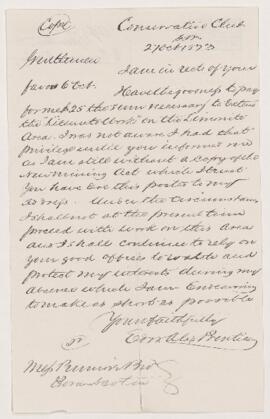 Copy
Conservative Club
27 Oct 1873
Gentlemen
I am in rect of your
favor 6 Oct.
Have the goodness to pay
for me $25 the sum necessary to
the on the
Area. I was not aware I had that
privilege until you informed me
as I am still without a copy of the
New Mining Act which I trust
you have ere this posted to my
address. Under the circumstances
I shall not at the present time
proceed with work on this area
and I shall continue to rely on
your good offices to and
protect my interests during my
absence which I am Endeavouring
to make as short as possible
Yours faithfully
Messrs Bros